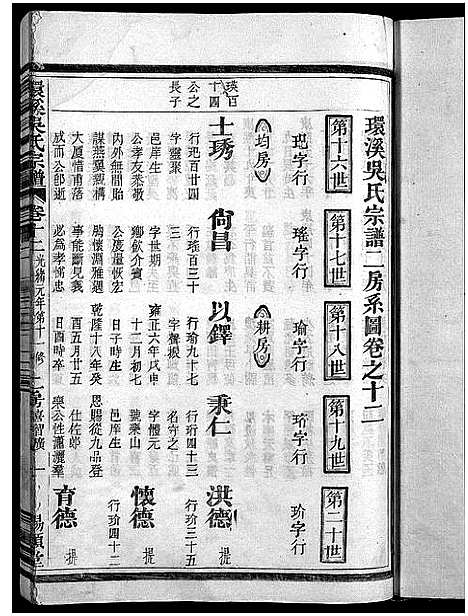 環溪吳氏宗譜二房系圖卷之十二
第十六世
玘字行
第十七世
瑤字行
第十八世
瑜字行
第十九世
珩字行
第二十世
玠字行
均房
耕房
瑛百
十四
公之
長子
士琇
行玘百廿四
字靈聚
邑庠生
內外無間飴
謀燕翼親構
大厦惜甫落
成而公卽逝
尙昌
行瑤百三十
三
字世期
公孝友承歡
鄉飲介賓
公慶量恢宏
胸懷淵雅廻
事能斷見義
必爲孝悌忠
以鐸
行瑜九十七
字聲振
雍正六年戊申
十二月初七
日子時生
乾隆十八年癸
酉五月廿五
日酉時卒
秉仁
行珩四十三
名守之
字體元
號樂山
邑庠生
恩賜從九品登
仕佐郎
樂公性瀟灑羣
洪德
行玠三十五
提
懷德
行玠四十二
提
育德
提
環溪吳氏宗譜
卷十二
光緒元年第十一修
二房
一